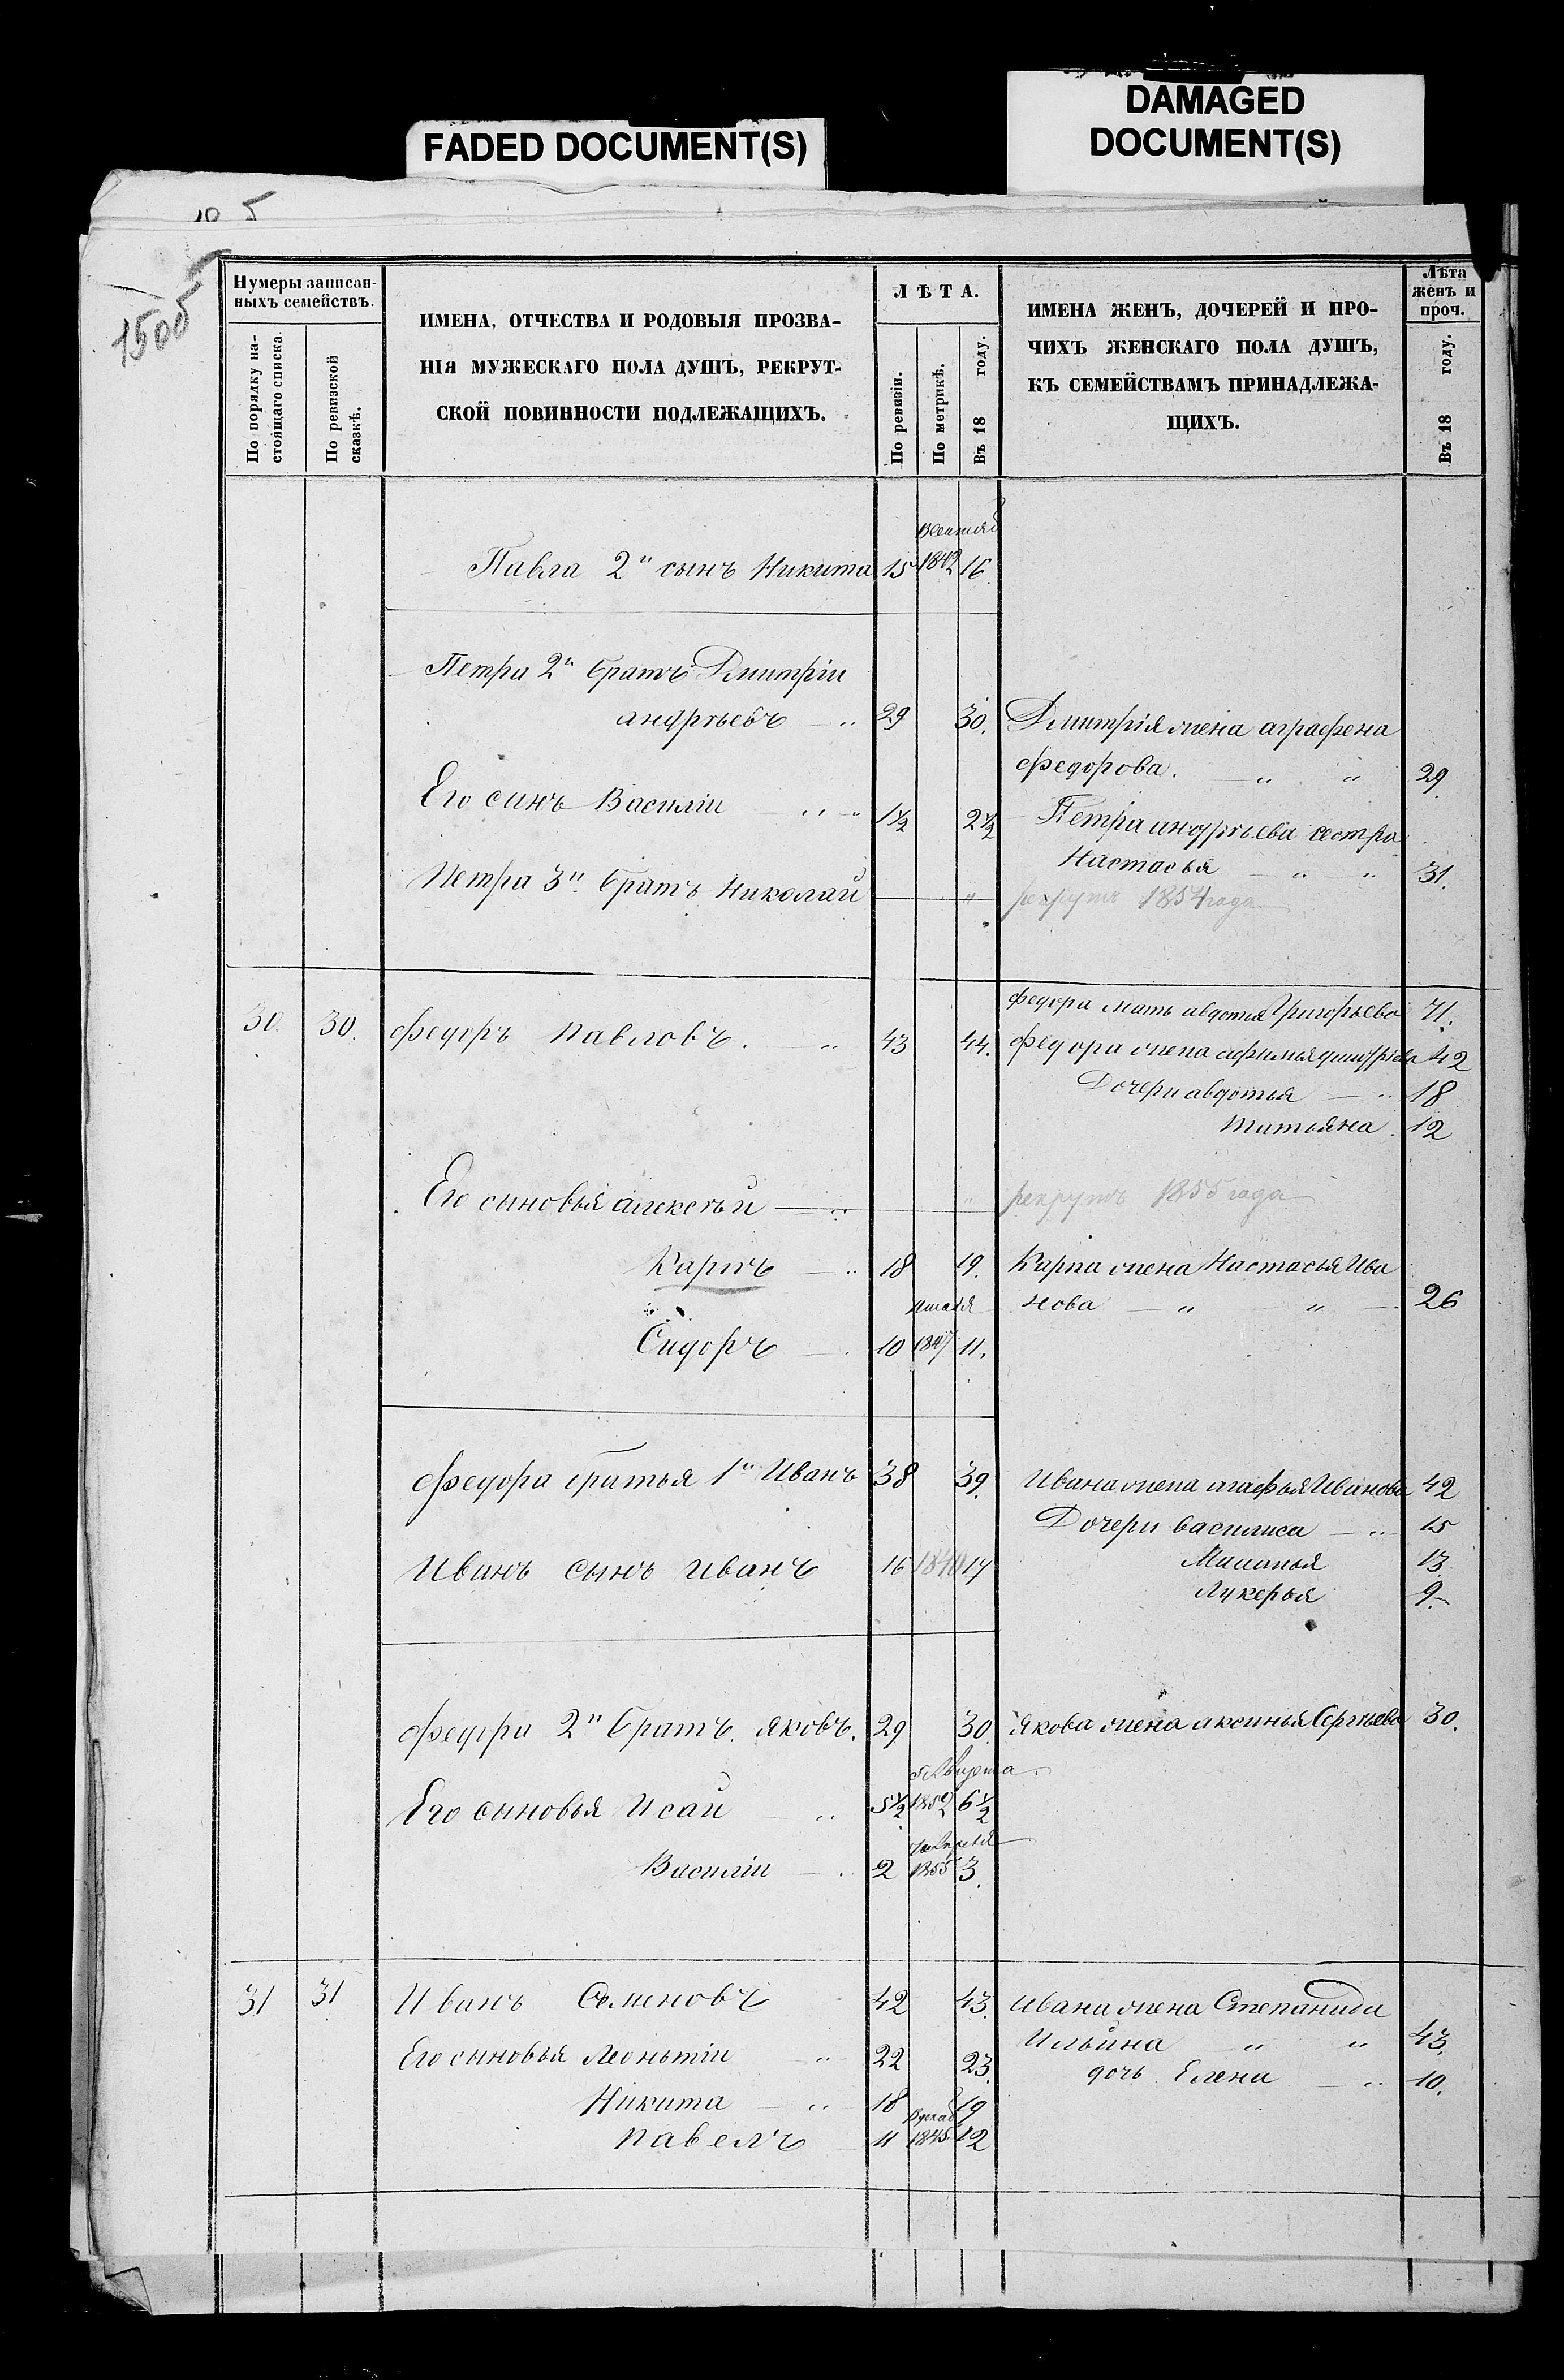 FADED DOCUMENT(S)
DAMAGED
DOCUMENT(S)
1505
Нумеры записан-
ныхъ семействъ.
По порядку на-
стоящаго списка.
По ревизской
сказкѣ.
ИМЕНА, ОТЧЕСТВА И РОДОВЫЯ ПРОЗВА-
НІЯ МУЖЕСКАГО ПОЛА ДУШЪ, РЕКРУТ-
СКОЙ ПОВИННОСТИ ПОДЛЕЖАЩИХЪ.
ЛѢТА.
По ревизіи.
По метрикѣ.
Въ 18 году.
ИМЕНА ЖЕНЪ, ДОЧЕРЕЙ И ПРО-
ЧИХЪ ЖЕНСКАГО ПОЛА ДУШЪ,
КЪ СЕМЕЙСТВАМЪ ПРИНАДЛЕЖА-
ЩИХЪ.
Лѣта
женъ и
проч.
Въ 18 году.
Павла 2й сынъ Никита 15 1842 16.
Петра 2й братъ Дмитріи
андрѣевъ — „ 29 30. Дмитрія жена аграфена
федорова. — „ „ 29.
Его сынъ Василіи — „ „ 1½ 2½ Петра андрѣева сестра
Настасья — „ „ 31.
Петра 3й братъ Николай — „ рекрутъ 1854 года
федора мать авдотья Григорьева 71.
30. 30. федоръ павловъ. — „ 43 44. федора жена афимья 42
Дочери авдотья — „ 18
татьяна. 12
Его сыновья алексѣй — „ „ рекрутъ 1855 года
Карпъ — „ 18 19. Карпа жена Настасья Ива
нова — „ „ — 26
Сидоръ — 10 1847 11.
федора братья 1й Иванъ 38 39. Ивана жена агафья Иванова 42
Дочери василиса — „ 15
Иванъ сынъ иванъ 16 1840 17
13
Лукерья 9.
федора 2й братъ. яковъ. 29 30. якова жена аксинья Сергѣева 30.
Августа
Его сыновья Исаи — „ 5½ 1852 6½
Василіи — 2 1855 3.
31 31 Иванъ Семеновъ 42 43. Ивана жена Степанида
Ильина „ „ 43.
Его сыновья Леонтіи „ 22 23.
дочь Елена — „ 10.
Никита — „ 18 19
павелъ 11 1845 12